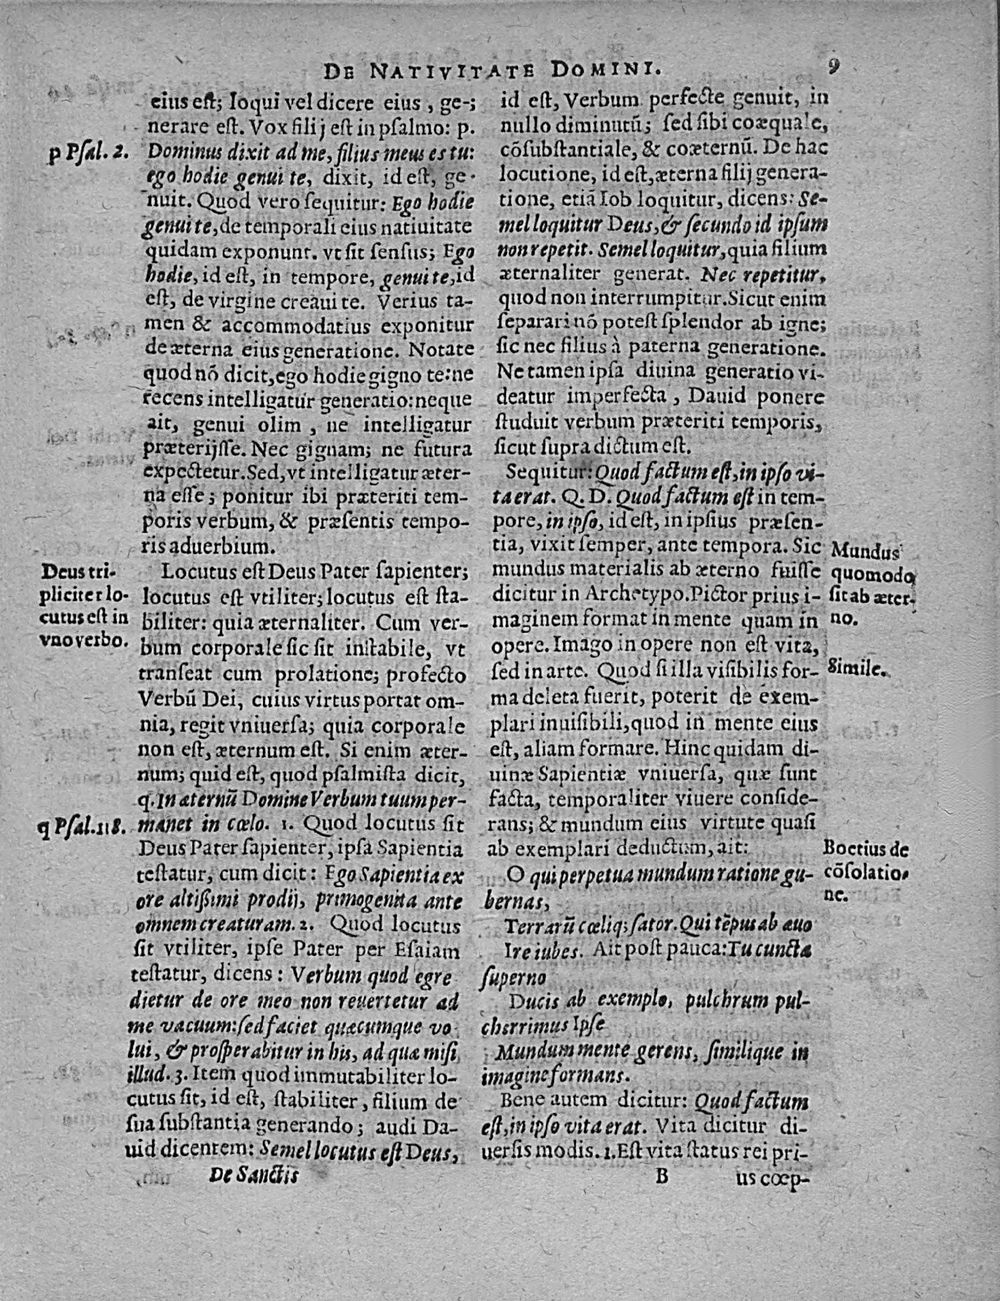 DE NATIVITATE DOMINI. 9
eius est; loqui vel dicere eius, ge-;
nerare est. Vox filij est in psalmo: p.
p Psal. 2.
Dominus dixit ad me, filius meus es tu:
ego hodie genui te, dixit, id est, ge-
nuit. Quod vero sequitur: Ego hodie
genui te, de temporali eius natiuitate
quidam exponunt. vt sit sensus; Ego
hodie, id est, in tempore, genui te, id
est, de virgine creaui te. Verius ta-
men & accommodatius exponitur
de æterna eius generatione. Notate
quod nō dicit, ego hodie gigno te: ne
recens intelligatur generatio: neque
ait, genui olim, ne intelligatur
præterijsse. Nec gignam; ne futura
expectetur. Sed, vt intelligatur æter-
na esse; ponitur ibi præteriti tem-
poris verbum, & præsentis tempo-
ris aduerbium.
Deus tri-
pliciter lo-
cutus est in
vno verbo.
Locutus est Deus Pater sapienter;
locutus est vtiliter; locutus est sta-
biliter: quia æternaliter. Cum ver-
bum corporale sic sit instabile, vt
transeat cum prolatione; profecto
Verbū Dei, cuius virtus portat om-
nia, regit vniuersa; quia corporale
non est, æternum est. Si enim æter-
num; quid est, quod psalmista dicit,
q. In æternū Domine Verbum tuum per-
q Psal. 118.
manet in cœlo. 1. Quod locutus sit
Deus Pater sapienter, ipsa Sapientia
testatur, cum dicit: Ego Sapientia ex
ore altissimi prodij, primogenita ante
omnem creaturam. 2. Quod locutus
sit vtiliter, ipse Pater per Esaiam
testatur, dicens: Verbum quod egre
dietur de ore meo non reuertetur ad
me vacuum: sed faciet quæcumque vo
lui, & prosperabitur in his, ad quæ misi
illud. 3. Item quod immutabiliter lo-
cutus sit, id est, stabiliter, filium de
sua substantia generando; audi Da-
uid dicentem: Semel locutus est Deus,
De Sanctis
id est, Verbum perfecte genuit, in
nullo diminutū; sed sibi coæquale,
cōsubstantiale, & coæternū. De hac
locutione, id est, æterna filij genera-
tione, etiā Iob loquitur, dicens: Se-
mel loquitur Deus, & secundo id ipsum
non repetit. Semel loquitur, quia filium
æternaliter generat. Nec repetitur,
quod non interrumpitur. Sicut enim
separari nō potest splendor ab igne;
sic nec filius à paterna generatione.
Ne tamen ipsa diuina generatio vi-
deatur imperfecta, Dauid ponere
studuit verbum præteriti temporis,
sicut supra dictum est.
Sequitur: Quod factum est, in ipso vi-
ta erat. Q. D. Quod factum est in tem-
pore, in ipso, id est, in ipsius præsen-
tia, vixit semper, ante tempora. Sic
mundus materialis ab æterno fuisse
dicitur in Archetypo. Pictor prius i-
maginem format in mente quam in
opere. Imago in opere non est vita,
sed in arte. Quod si illa visibilis for-
ma deleta fuerit, poterit de exem-
plari inuisibili, quod in mente eius
est, aliam formare. Hinc quidam di-
uinæ Sapientiæ vniuersa, quæ sunt
facta, temporaliter viuere conside-
rans; & mundum eius virtute quasi
ab exemplari deductum, ait:
Mundus
quomodo
sit ab æter-
no.
Simile.
Boetius de
cōsolatio-
ne.
O qui perpetua mundum ratione gu-
bernas,
Terrarū cœliq; sator. Qui tēpus ab æuo
Ire iubes. Ait post pauca: Tu cuncta
superno
Ducis ab exemplo, pulchrum pul-
cherrimus Ipse
Mundum mente gerens, similique in
imagine formans.
Bene autem dicitur: Quod factum
est, in ipso vita erat. Vita dicitur di-
uersis modis. 1. Est vita status rei pri-
B us cœp-